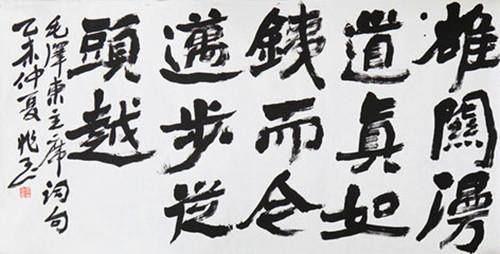 雄關漫
道真如
銕而今
邁步從
頭越
毛澤東主席詞句
乙未仲夏